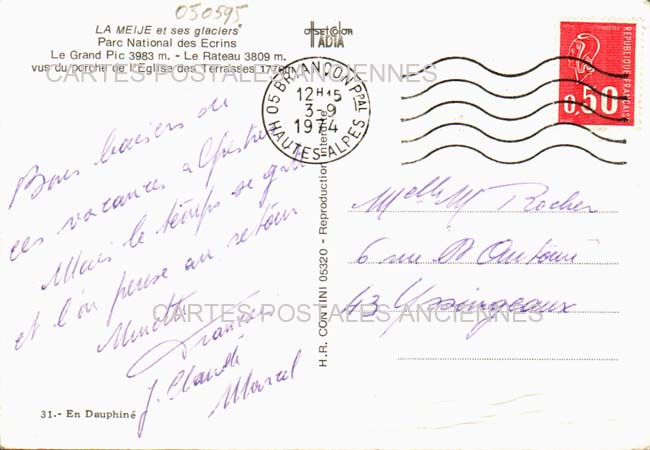 050595
LA MEIJE et ses glaciers
Parc National des Ecrins
Le Grand Pic 3983 m. - Le Rateau 3809 m.
vus du porche de l'Eglise des Terrasses
offset Color
IADIA
CARTES POSTALES ANCIENNES
05 BRIANCON PPAL
12H15
3-9
1974
HAUTES-ALPES
REPUBLIQUE FRANÇAISE
POSTES
0,50
Bons baisers de
ces vacances alpestres
Mais le temps se gâte
et l'on pense au retour
Minette
Francine
J. Claude
Marcel
H.R. CONTINI 05320 - Reproduction interdite
Melle M Rocher
6 rue St Antoine
43 Yssingeaux
CARTES POSTALES ANCIENNES
31.- En Dauphiné